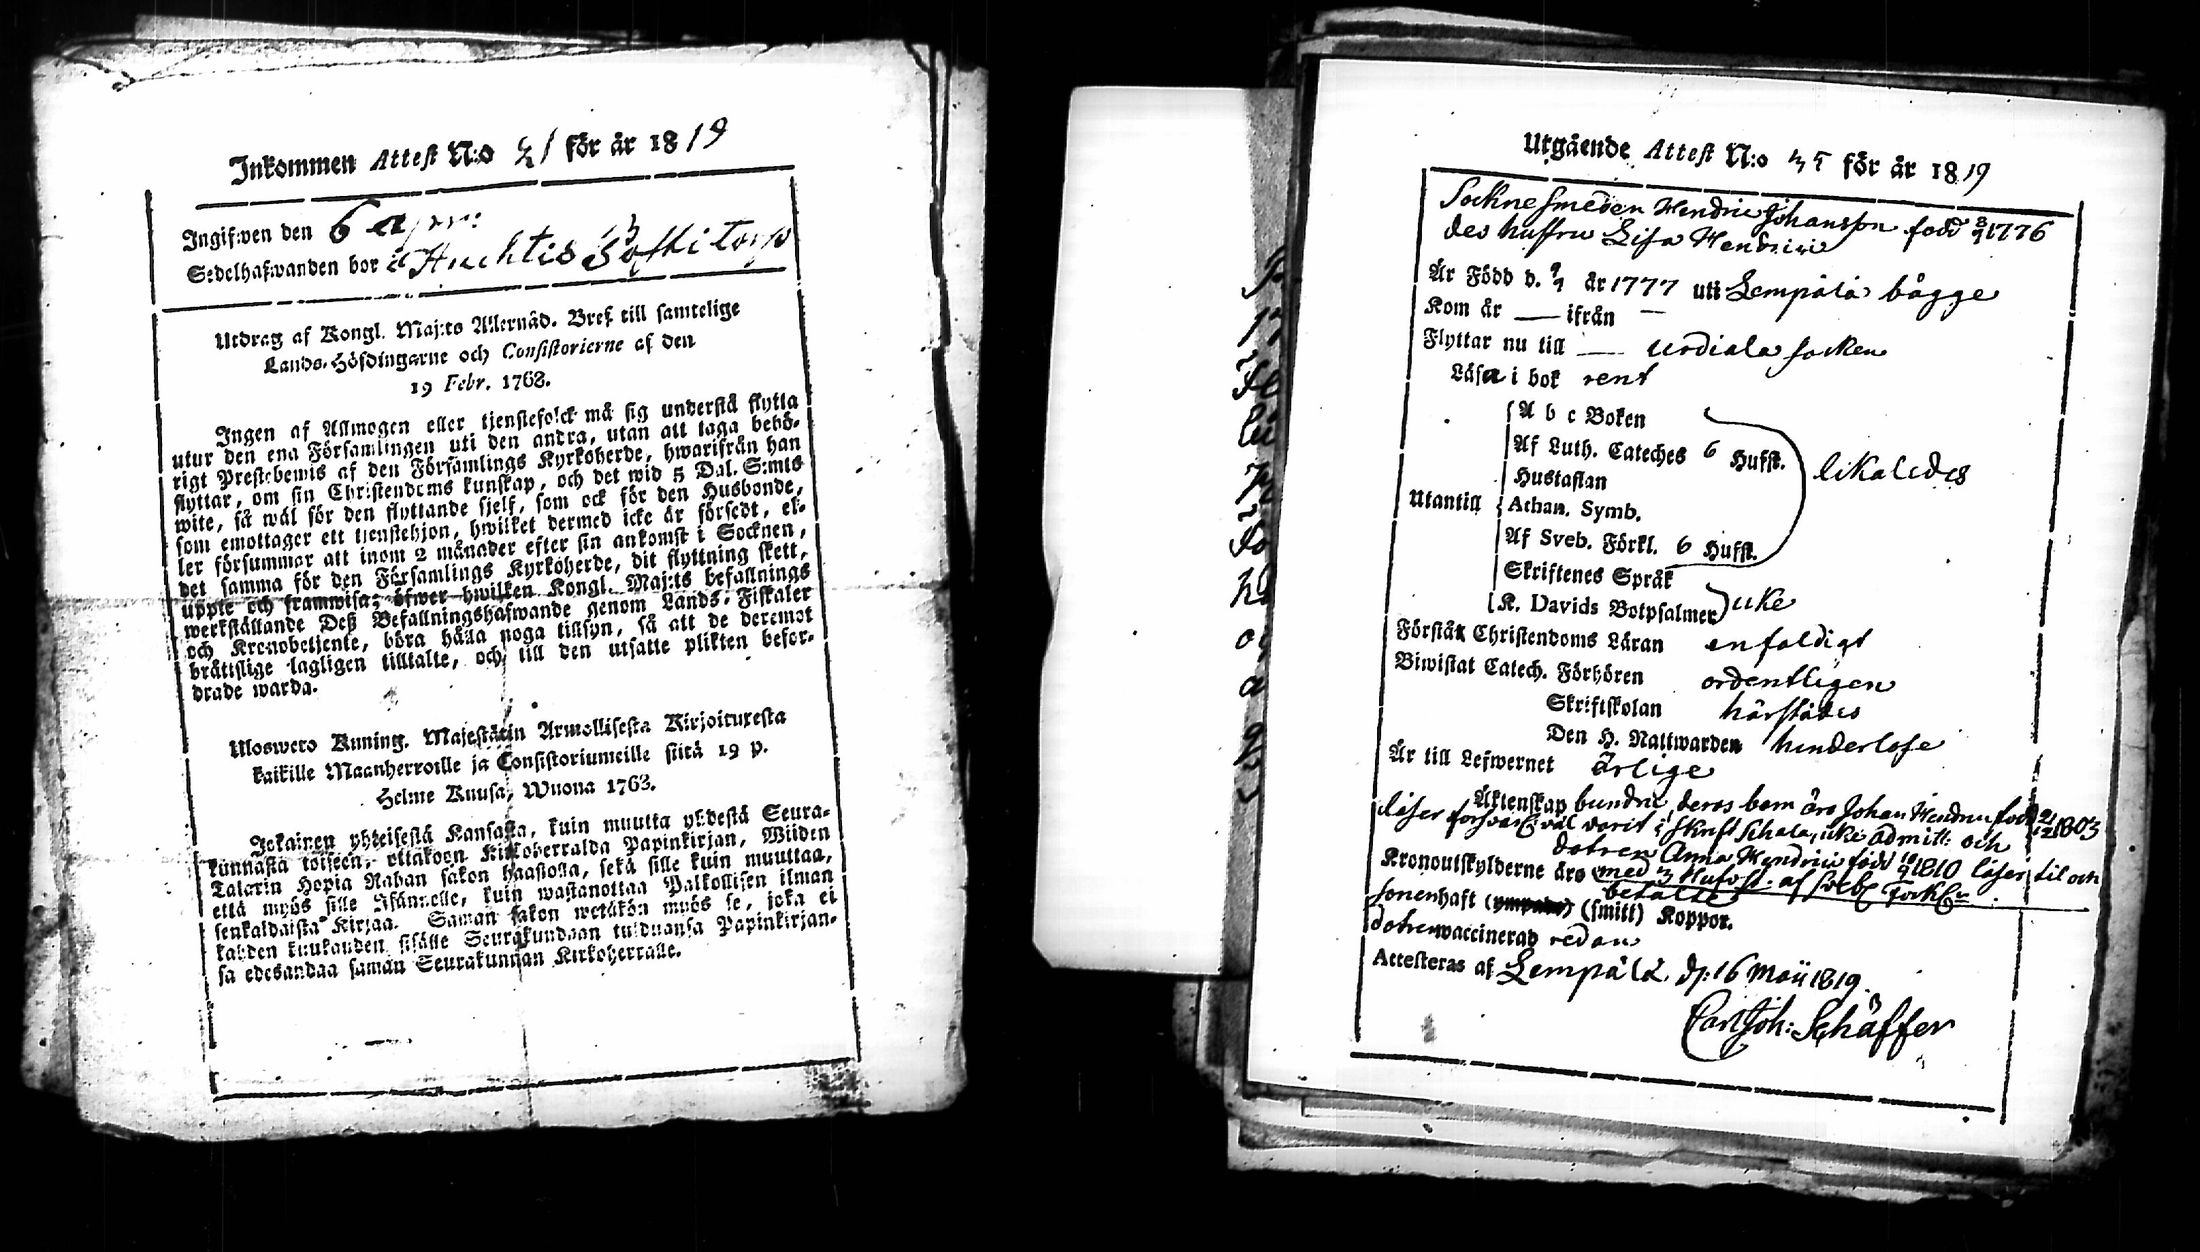 Inkommen Attest N:o 21 för år 1819
Ingifwen den 6
Sedelhafwanden bor i Huhtis Torp
Utdrag af Kongl. Maj:ts Allernåd. Bref till samtelige
Lands-Höfdingarne och Consistorierne af den
19 Febr. 1768.
Ingen af Allmogen eller tjenstefolck må sig understå flytta
utur den ena Församlingen uti den andra, utan att taga behö-
rigt Prestebewis af den Församlings Kyrkoherde, hwarifrån han
flyttar, om sin Christendoms kunskap, och det wid 5 Dal. S:mts
wite, så wäl för den flyttande sjelf, som ock för den Husbonde,
som emottager ett tjenstehjon, hwilket dermed icke är försedt, el-
ler försummar att inom 2 månader efter sin ankomst i Socknen,
det samma för den Församlings Kyrkoherde, dit flyttning skett,
uppte och framwisa; öfwer hwilken Kongl. Maj:ts befallnings
werkställande Deß Befallningshafwande genom Lands-Fiskaler
och Kronobetjente, böra hålla noga tillsyn, så att de deremot
bråttslige lagligen tilltalte, och till den utsatte plikten befor-
drade warda.
Uloswero Kuning. Majestätin Armollisesta Kirjoituxesta
kaikille Maanherroille ja Consistoriumeille siitä 19 p.
Helme Kuusa, Wuona 1763.
Jokainen yhteisestä Kansasta, kuin muutta yhdestä Seura-
kunnasta toiseen, ottakoon Kirkoherralda Papinkirjan, Wiiden
Talarin Hopia Rahan sakon haastolla, sekä sille kuin muuttaa,
että myös sille Isännelle, kuin wastanottaa Palkollisen ilman
senkaldaista Kirjaa. Saman sakon wetäkön myös se, joka ei
kahden kuukauden sisälle Seurakundaan tulduansa Papinkirjan-
sa edesandaa saman Seurakunnan Kirkoherralle.
Utgående Attest N:o 35 för år 1819
Sockne smeden Hendric Johansson född 1776
des hustru Lisa Hendrici
Är Född d. år 1777 uti Lempälä bägge
Kom år — ifrån —
Flyttar nu till — Urdiala socken
Läsa i bok rent
A b c Boken
Af Luth. Cateches 6 Hufst.
Hustaflan
likaledes
Utantill
Athan. Symb.
Af Sveb. Förkl. 6 Hufst.
Skriftenes Språk
K. Davids Botpsalmer icke
Förstår Christendoms Läran enfaldigt
Biwistat Catech. Förhören ordentligen
Skriftskolan härstädes
Den H. Nattwarden hinderlöse
Är till Lefwernet ärlige
Äktenskap bundne, deras barn äro Johan Hendric född 21/12 1803
läser försvarl: väl varit i Skrift Schola, icke admitt: och
dotren Anna Hendrici född 1810 läser til och
Kronoutskylderne äro med 3 Hufvst. af Sveb: Förkl:
betalte
sonen haft (smitt) Koppor.
dotren waccinerad redan
Attesteras af Lempälä d: 16 Maij 1819.
Carl Joh: Schäffer